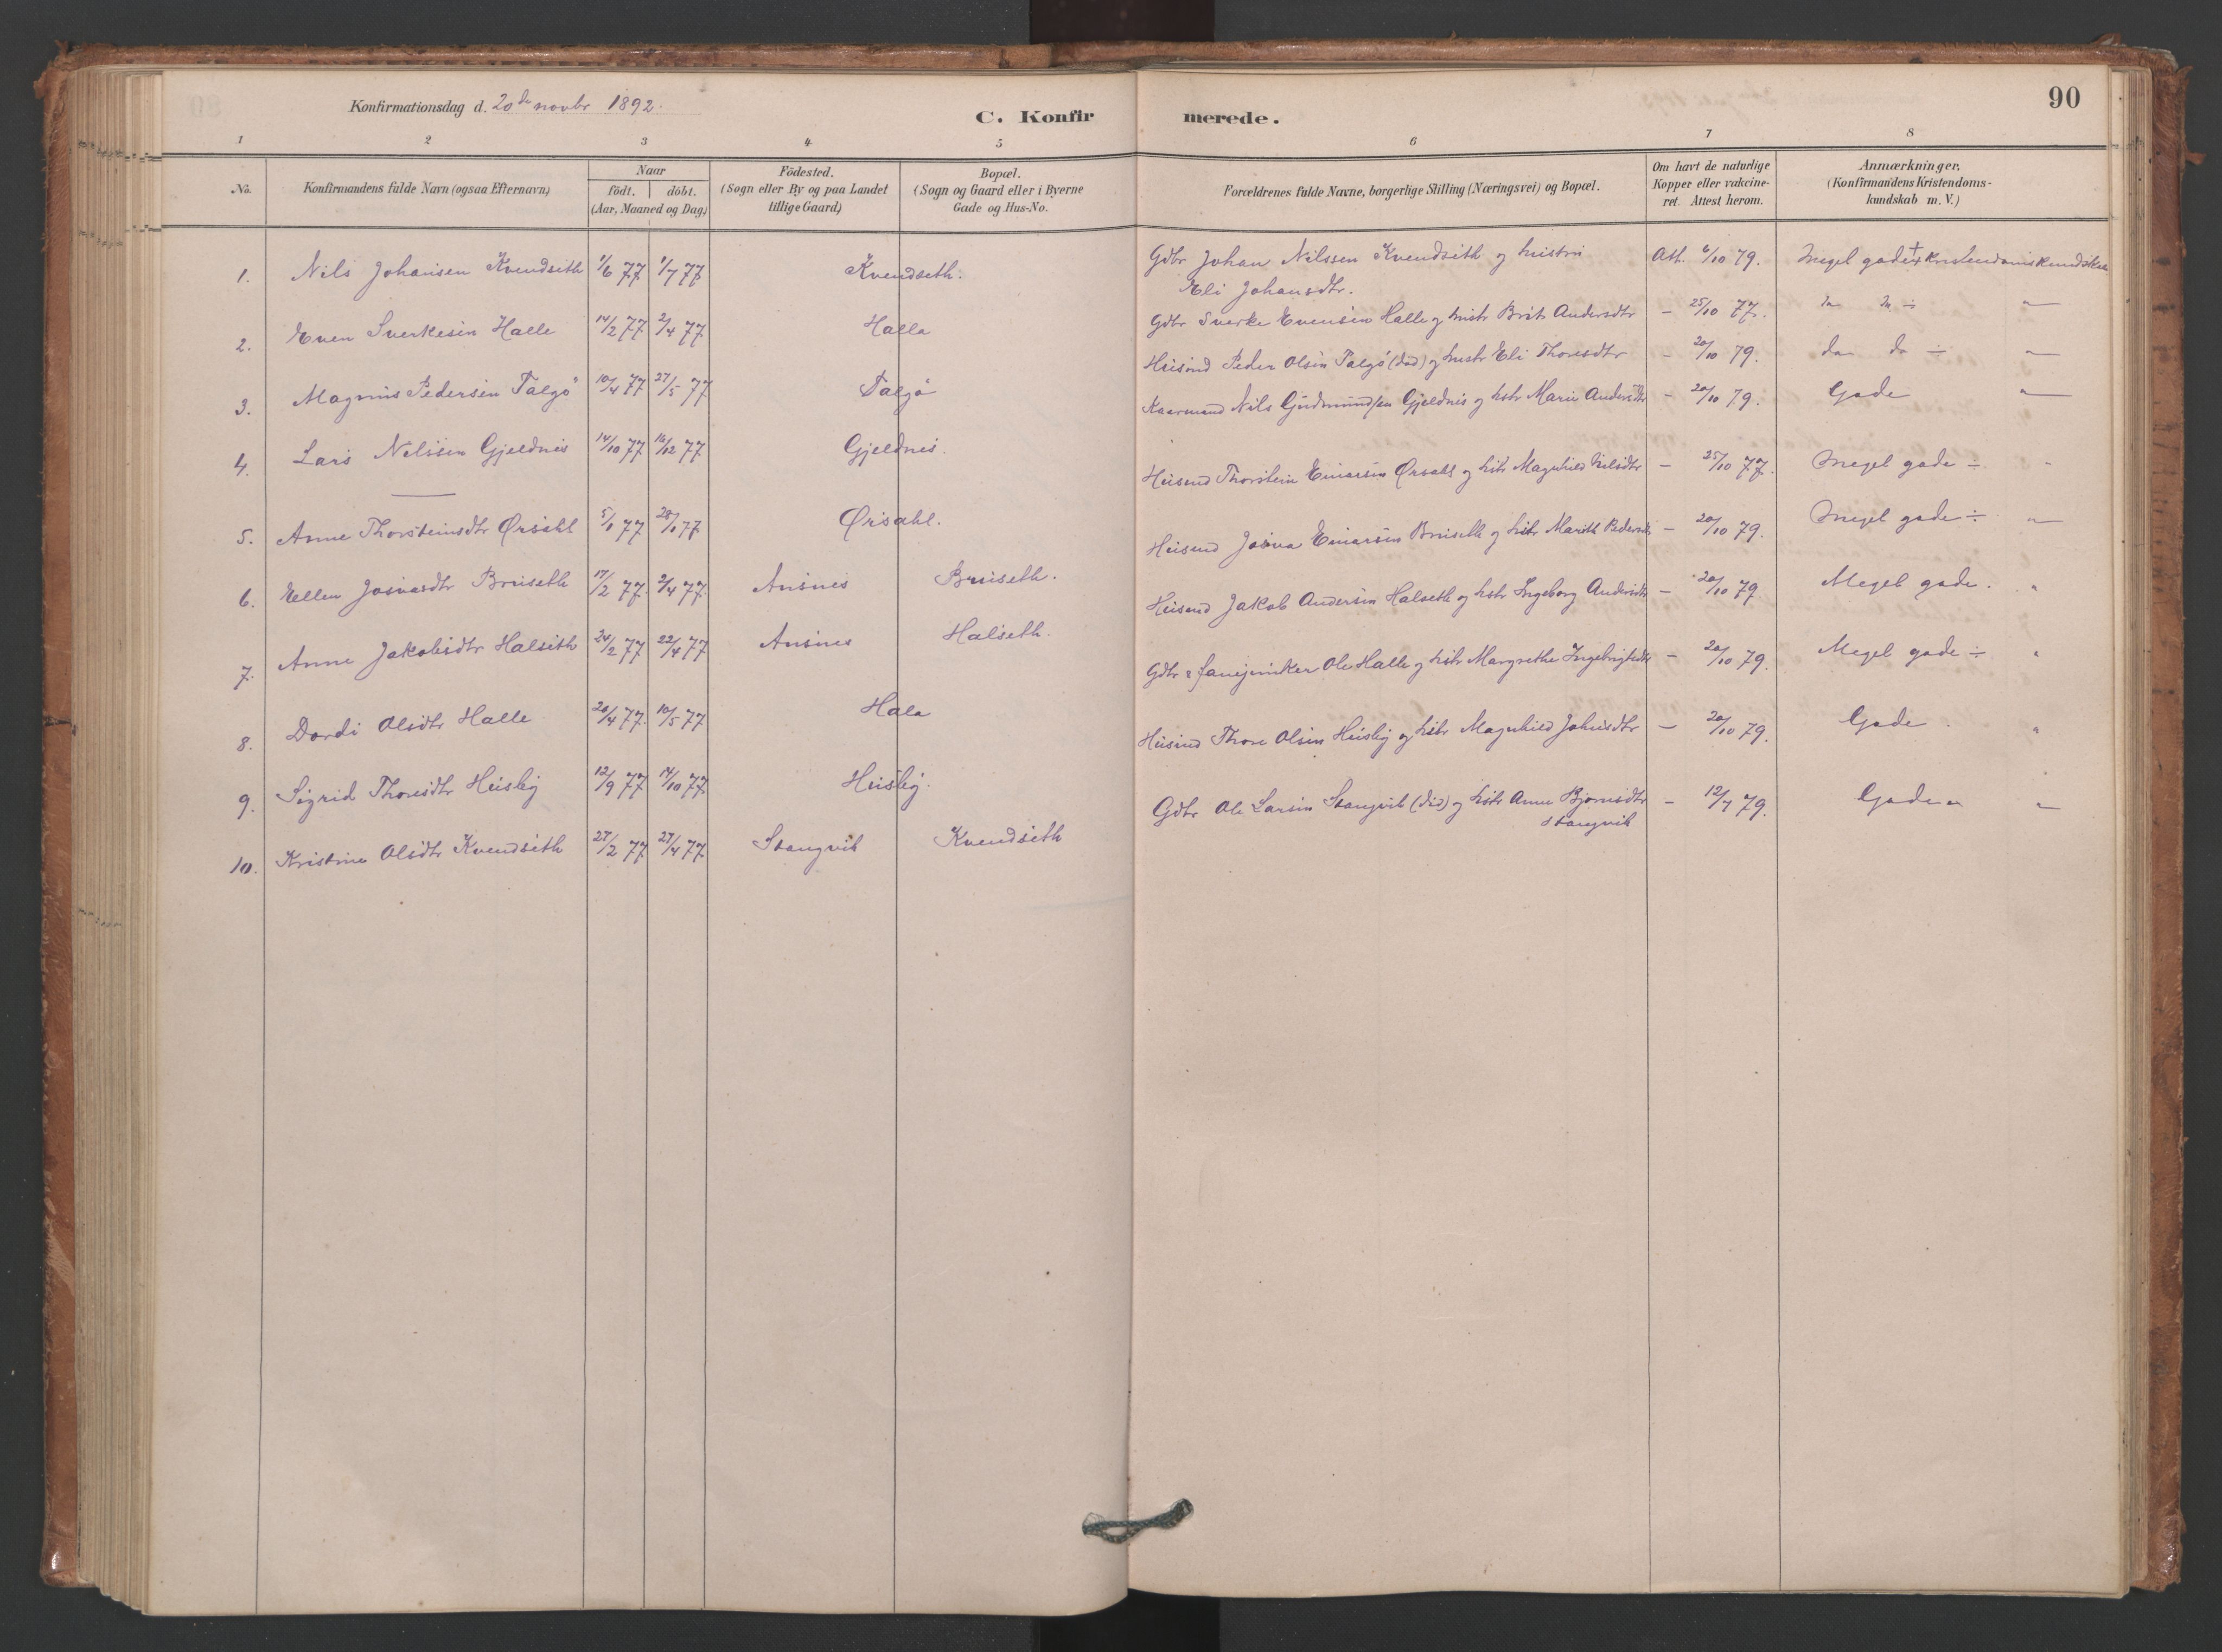 Konfirmationsdag d. 20de novbr 1892.
C. Konfirmerede.
90
1 2 3 4 5 6 7 8
No. Konfirmandens fulde Navn (ogsaa Efternavn) Naar födt. döbt. (Aar, Maaned og Dag) Födested. (Sogn eller By og paa Landet tillige Gaard) Bopæl. (Sogn og Gaard eller i Byerne Gade og Hus-No. Forældrenes fulde Navne, borgerlige Stilling (Næringsvei) og Bopæl. Om havt de naturlige Kopper eller vakcineret. Attest herom. Anmærkninger. (Konfirmandens Kristendomskundskab m. V.)
1. Nils Johansen Kvendseth 1/6 77 1/7 77 Kvendseth. Gdbr Johan Nilssen Kvendseth og hustru Eli Johansdtr. Att. 6/10 79. Meget gode + Kristendomskundskab
2. Even Sverkesen Halle 14/2 77 2/4 77 Halla Gdbr Sverke Evensen Halle og hustr Brit Andersdtr — 25/10 77. do do ÷ "
3. Magnus Pedersen Talgö 10/4 77 27/5 77 Talgö Huismd Peder Olsen Talgö (död) og hustr Eli Thoresdtr — 20/10 79. do do ÷ "
4. Lars Nilssen Gjeldnes 14/10 77 16/12 77 Gjeldnes. Kaarmand Nils Gudmundsen Gjeldnes og hstr Marie Andersdtr — 20/10 79. Gode "
5. Anne Thorsteinsdtr Ørsahl 5/1 77 28/1 77 Ørsahl. Huismd Thorstein Einarsen Ørsahl og hstr Magnhild Nilsdtr — 25/10 77. Meget gode ÷ "
6. Ellen Josvasdtr Bruseth 17/2 77. 2/4 77. Ansnes Bruseth. Huismd Josva Einarsen Bruseth og hstr Marith Pedersdtr — 20/10 79. Meget gode ÷ "
7. Anne Jakobsdtr Halseth 24/2 77 22/4 77 Ansnes Halseth. Huismd Jakob Andersen Halseth og hstr Ingeborg Andersdtr — 20/10 79 Meget gode. "
8. Dordi Olsdtr Halle 20/4 77. 10/5 77 Hala Gdbr & Ole Halle og hstr Margrethe Ingebrigtsdtr — 20/10 79. Meget gode ÷ "
9. Sigrid Thoresdtr Husby 12/9 77 14/10 77. Husby. Huismd Thore Olsen Husby og hstr Magnhild Johnsdtr — 20/10 79. Gode. "
10. Kristine Olsdtr Kvendseth 27/2 77 27/4 77. Stangvik Kvendseth Gdbr Ole Larsen Stangvik (död) og hstr Anne Bjornsdtr Stangvik — 12/7 79. Gode "